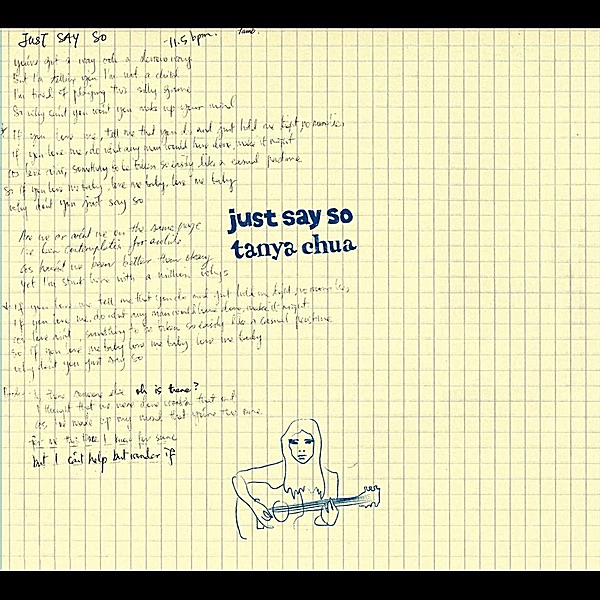 JUST SAY SO
-11.5 bpm.
Tamb.
you've got a way
But I'm telling you I'm not a child
I'm tired of playing this silly game
So why can't you won't you make up your mind
If you love me, tell me that you do and just hold me tight, no mumbles
if you love me, do what any man would have done, make it right
something to be taken so easily like a casual pastime
So if you love me baby, love me baby, love me baby
why don't you just say so
Are we or aren't we on the same page
I've been contemplating for awhile
haven't we been better than okay
Yet I'm stuck here with a million whys
if you love me tell me that you do and just hold me tight, no mumbles
if you love me, do what any man would have done, make it right
something to be taken so easily like a casual pastime
So if you love me baby love me baby love me baby
why don't you just say so
someone else oh is there?
I thought that we were done workin' that out
made up my mind that you're the one
this time I know for sure
but I can't help but wonder if
just say so
tanya chua